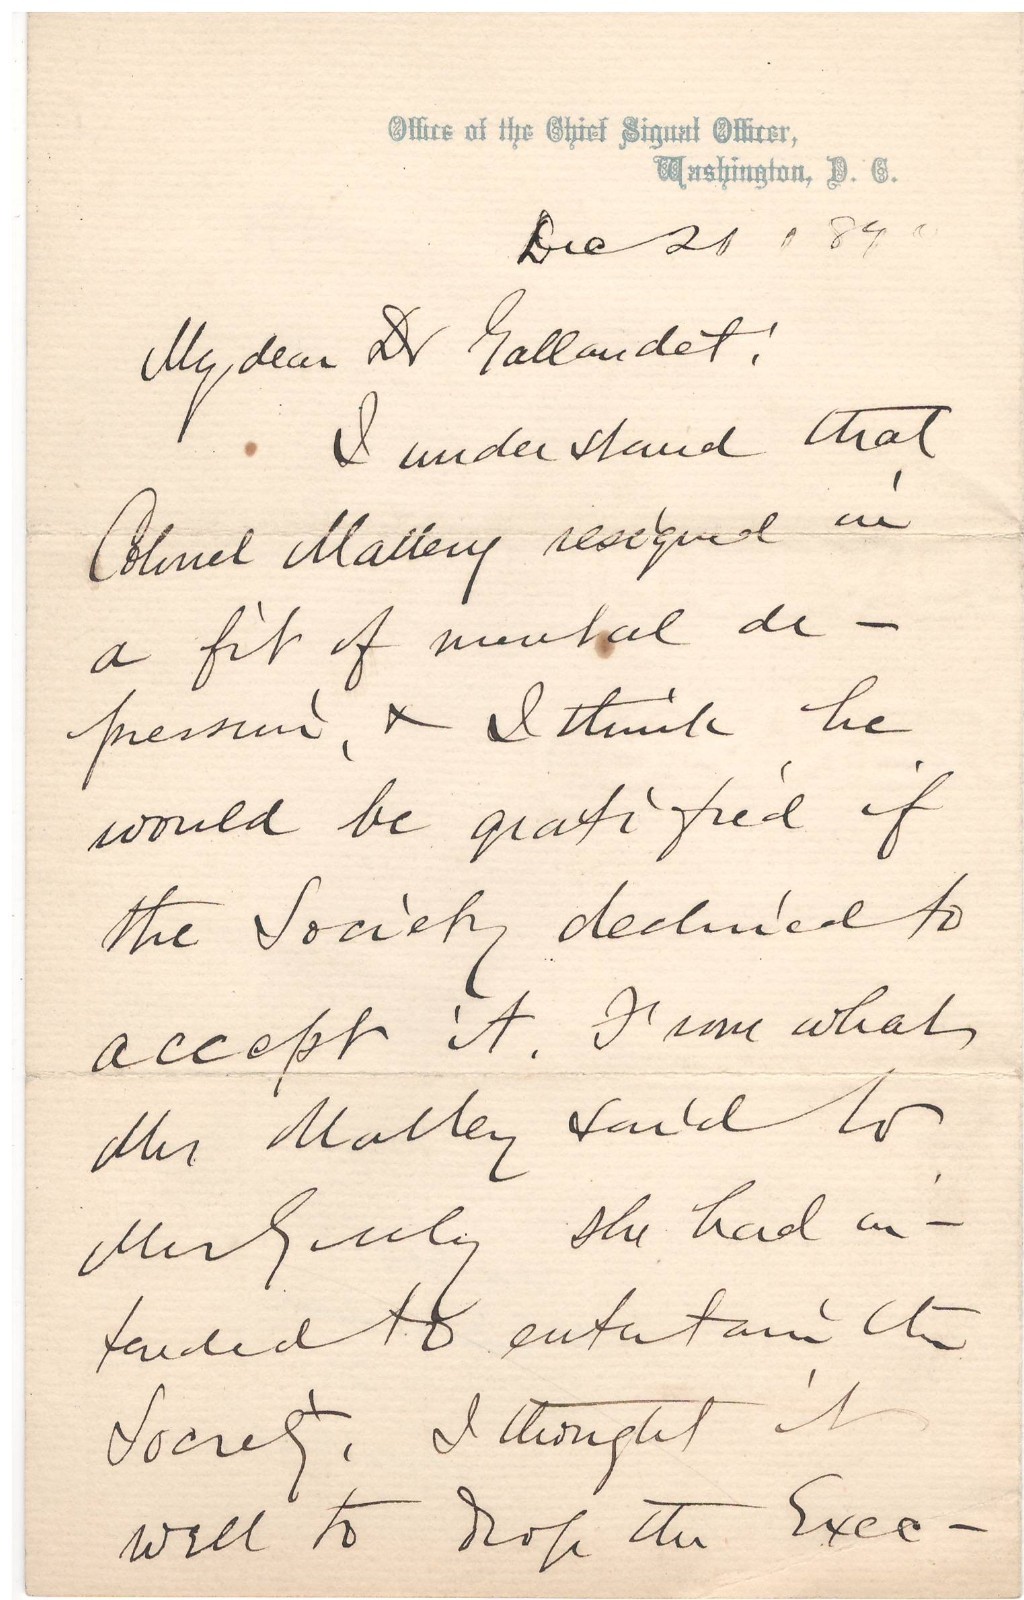 Office of the Chief Signal Officer,
Washington, D. C.
Dec 20 189
My dear Dr Gallaudet:
I understand that
Colonel Mallery resigned in
a fit of mental de-
pression, & I think he
would be gratified if
the Society declined to
accept it. From what
Mrs Mallery said to
Mrs Greely she had in-
tended to entertain the
Society. I thought it
well to drop the Exec-